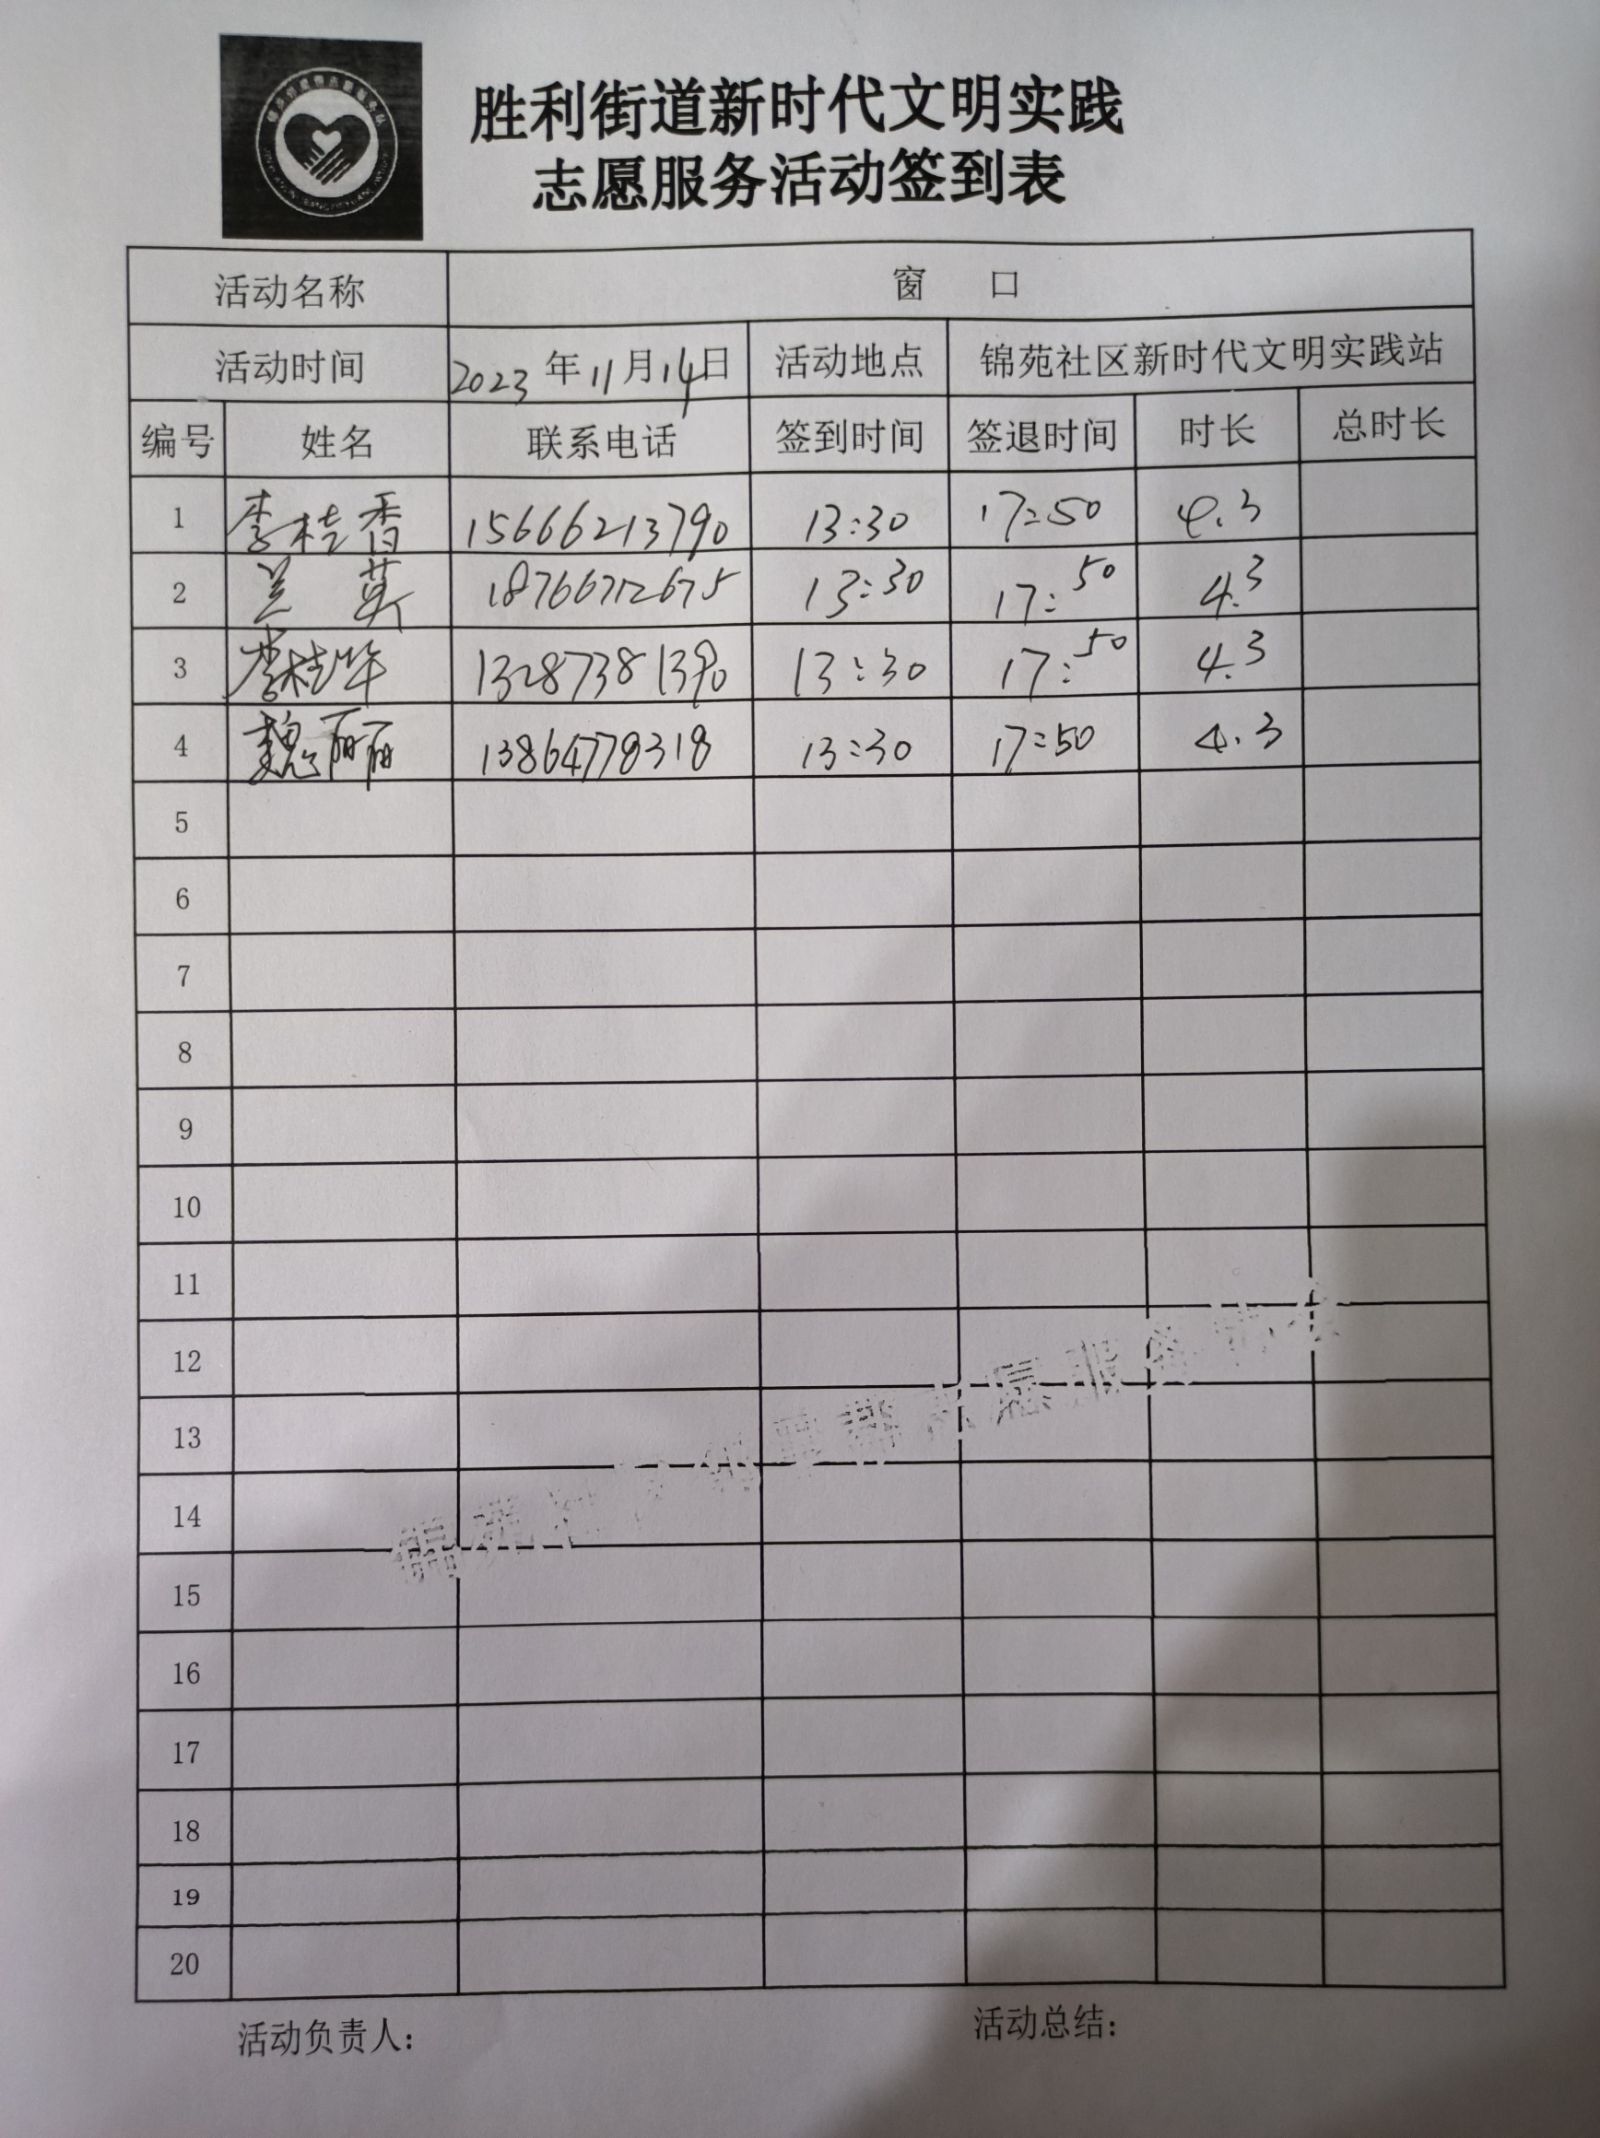 胜利街道新时代文明实践
志愿服务活动签到表
活动名称 窗 口
活动时间 2023 年 11 月 14 日 活动地点 锦苑社区新时代文明实践站
编号 姓名 联系电话 签到时间 签退时间 时长 总时长
1 李桂香 15666213790 13:30 17:50 4.3
2 兰英 18766712675 13:30 17:50 4.3
3 李桂华 13287381390 13:30 17:50 4.3
4 魏丽丽 13864778318 13:30 17:50 4.3
5
6
7
8
9
10
11
12
13
14
15
16
17
18
19
20
活动负责人: 活动总结: